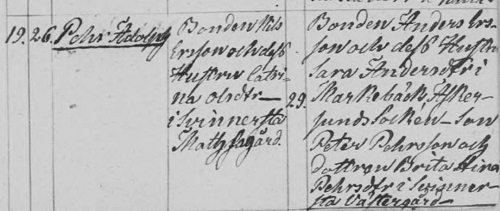 19. 26. Pehr Adolph
Bonden Nils
Ersson och dess
Hustru Catri
na Olsdr
i Svinnersta
Mats sgård.
Bonden Anders Er
sson och dess Hustru
Sara Andersdr i
29. Markebäck Asker
sunds Socken - Son
Peter Pehrsson och
dottren Brita Stina
Pehrsdr i Svinner
sta Västergård